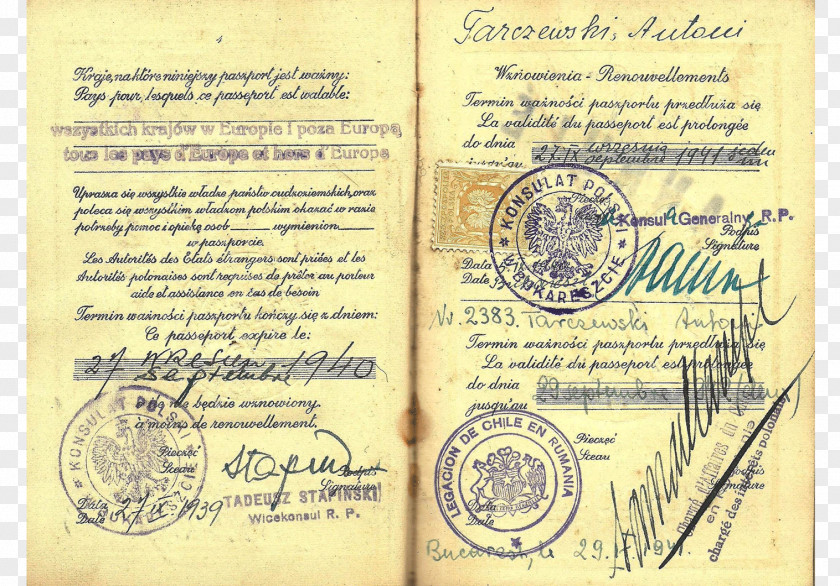 4
Kraje, na które niniejszy paszport jest ważny:
Pays pour lesquels ce passeport est walable:
wszystkich krajów w Europie i poza Europą
tous les pays d'Europe et hors d'Europe
Uprasza się wszystkie władze państw cudzoziemskich, oraz
poleca się wszystkim władzom polskim okazać w razie
potrzeby pomoc i opiekę osob wymienion
w paszporcie.
Les Autorités des Etats étrangers sont priées et les
Autorités polonaises sont requises de prêter au porteur
aide et assistance en cas de besoin
Termin ważności paszportu kończy się z dniem:
Ce passeport expire le:
27 wrzesień 1940
septembre
o ile nie będzie wznowiony.
à moins de renouvellement.
KONSULAT POLSKI
Pieczęć
Sceau
Podpis
Signature
TADEUSZ STAPIŃSKI
Wicekonsul R. P.
Data
Date
27 IX 1939
Tarczewski, Antoni
Wznowienia - Renouvellements
Termin ważności paszportu przedłuża się
La validité du passeport est prolongée
do dnia
września
jusqu'au 27 IX septembre 1941
Pieczęć
KONSULAT POLSKI
W BUKARESZCIE
Konsul Generalny R. P.
Podpis
Signature
Data
Date
Nr. 2383. Tarczewski Antoni
Termin ważności paszportu przedłuża się
La validité du passeport est prolongée
do dnia
29 septembre
jusqu'au
LEGACION DE CHILE EN RUMANIA
Pieczęć
Sceau
Podpis
Signature
Data
Date
chargé des intérêts polonais
Bucarest, le 29. 1941.